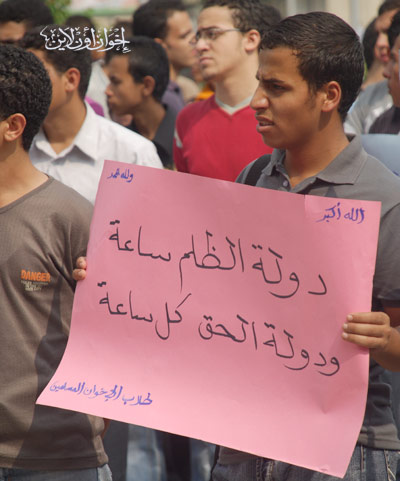 إخوان أون لاين
الله أكبر
ولله الحمد
دولة الظلم ساعة
ودولة الحق كل ساعة
طلاب الإخوان المسلمين
DANGER